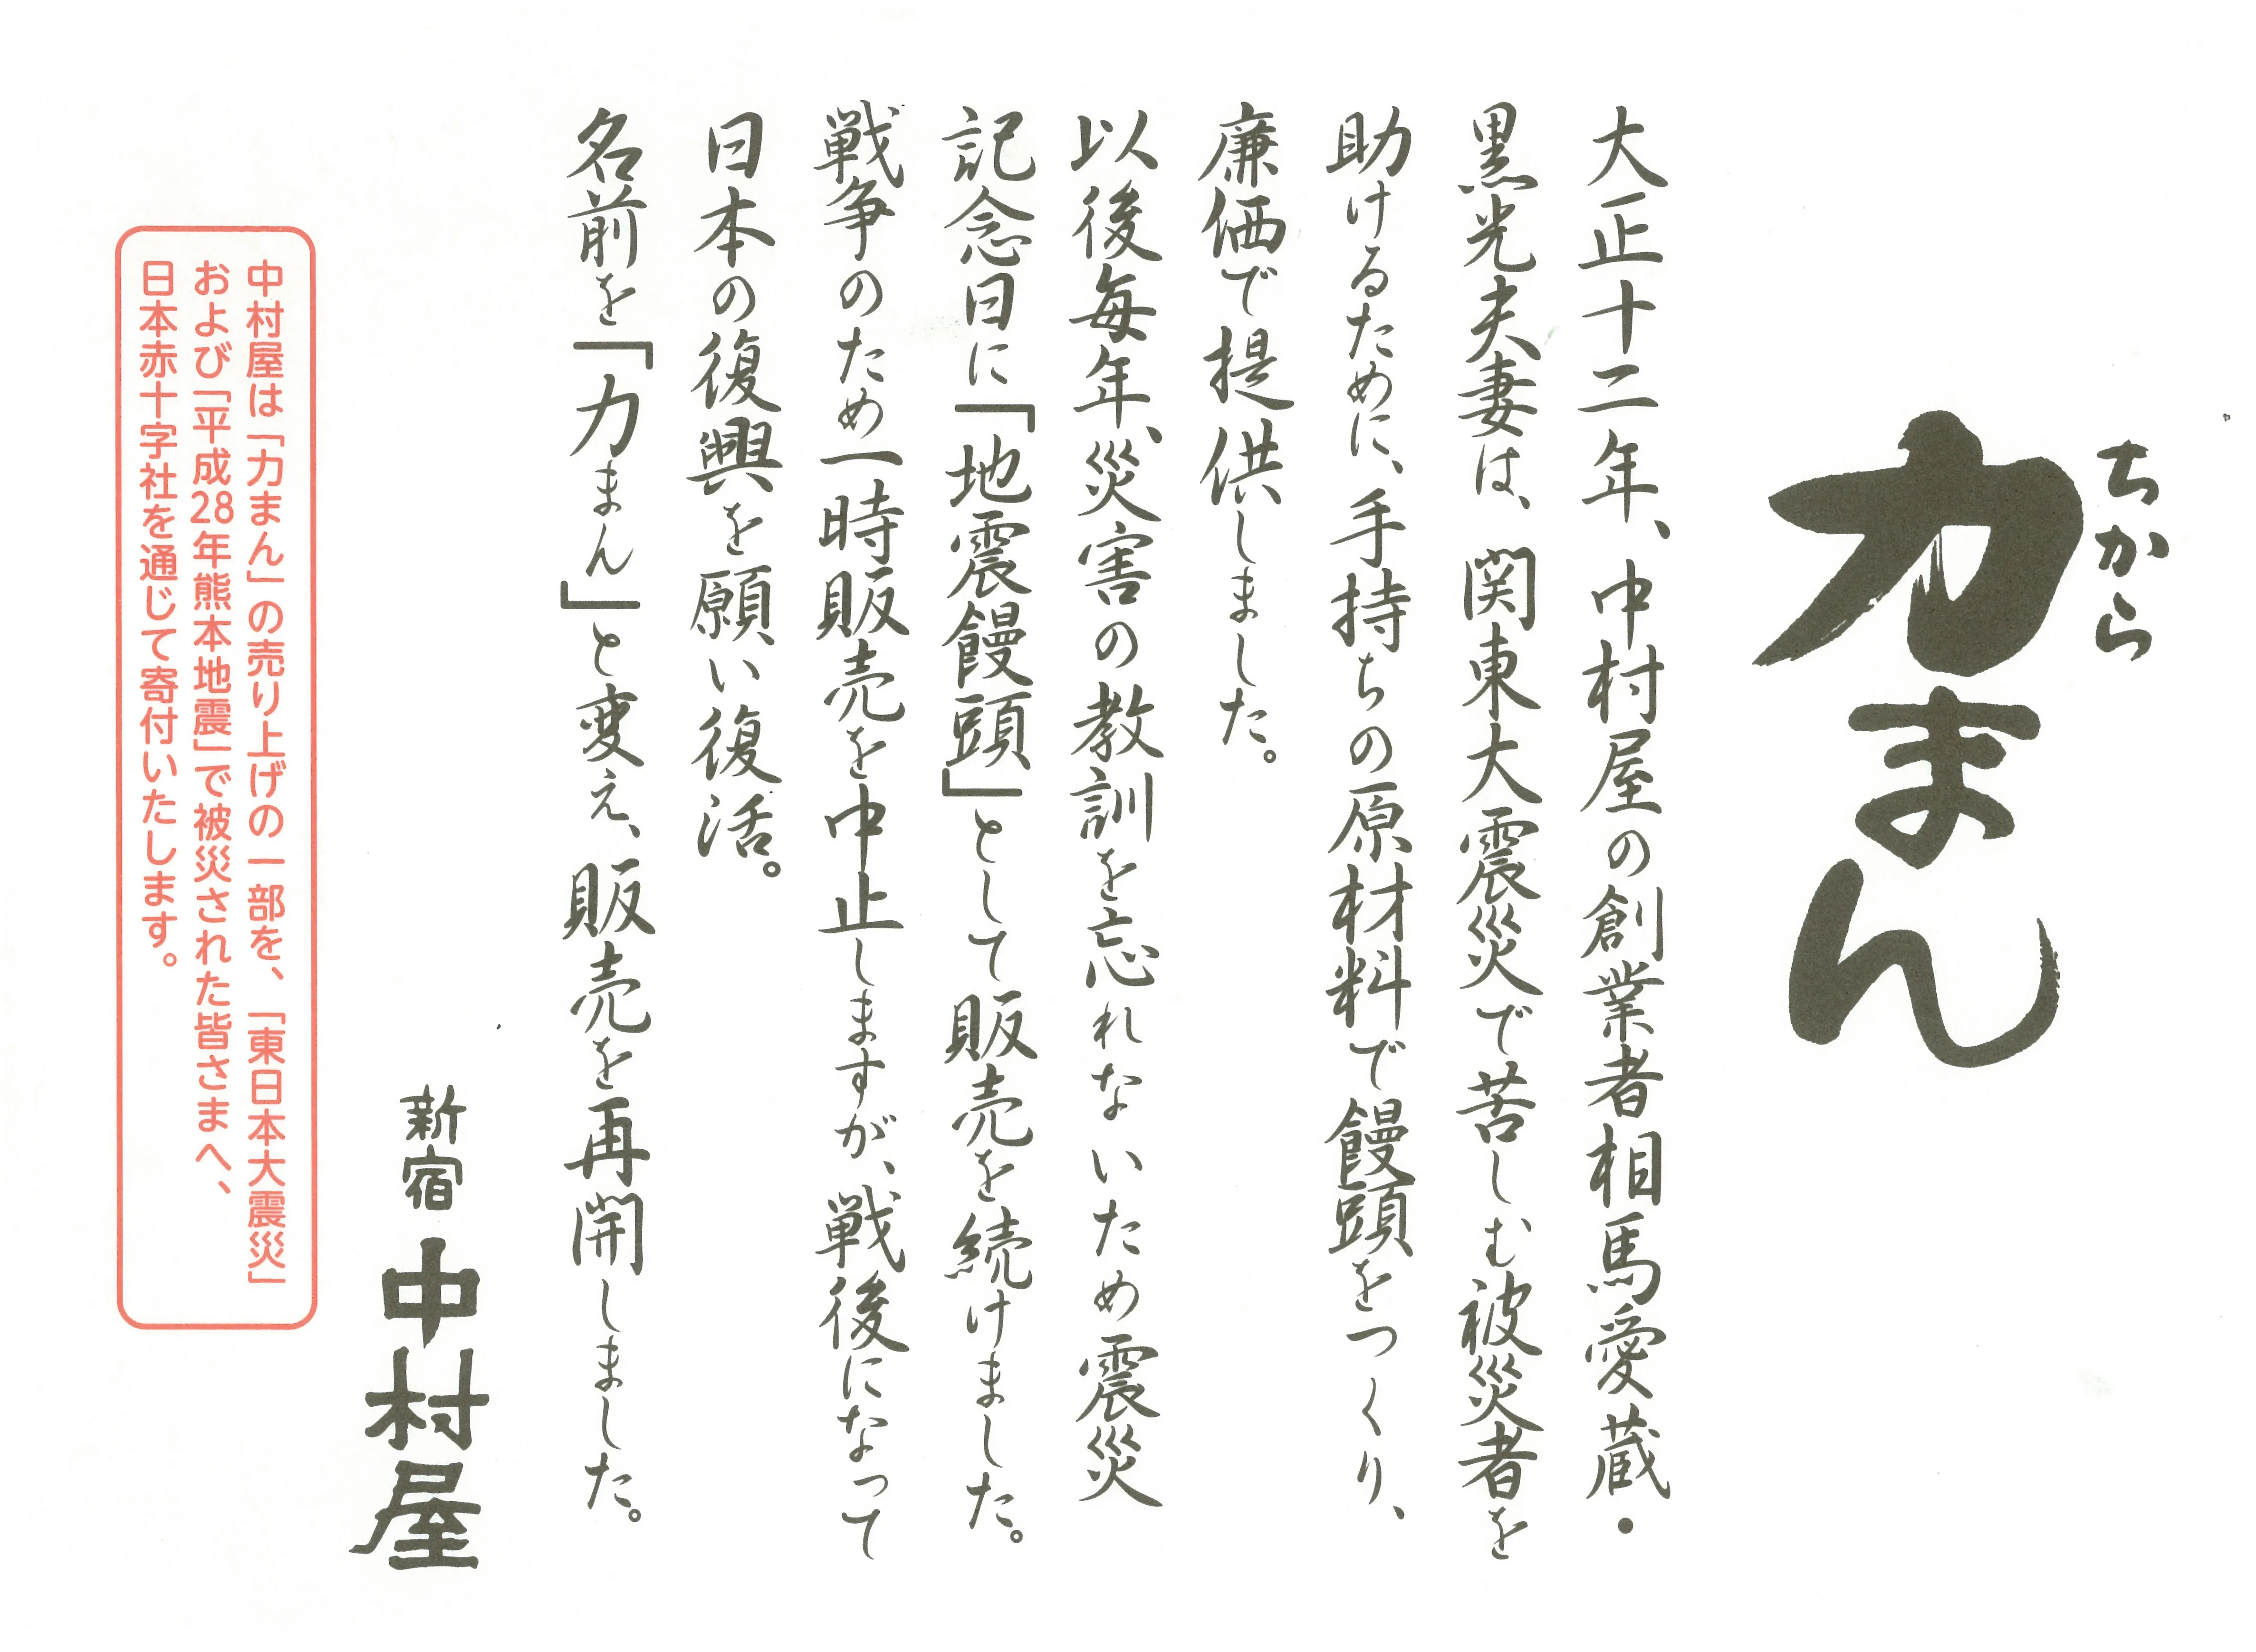 ちから
力まん
大正十二年、中村屋の創業者相馬愛蔵・
黒光夫妻は、関東大震災で苦しむ被災者を
助けるために、手持ちの原材料で饅頭をつくり、
廉価で提供しました。
以後毎年、災害の教訓を忘れないため震災
記念日に「地震饅頭」として販売を続けました。
戦争のため一時販売を中止しますが、戦後になって
日本の復興を願い復活。
名前を「力まん」と変え、販売を再開しました。
新宿 中村屋
中村屋は「力まん」の売り上げの一部を、「東日本大震災」
および「平成28年熊本地震」で被災された皆さまへ、
日本赤十字社を通じて寄付いたします。